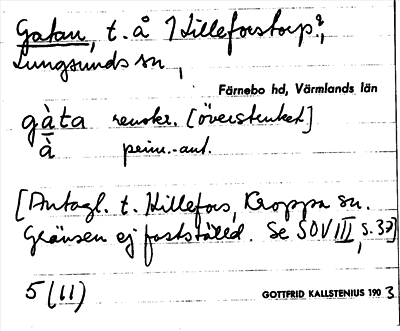 Gatan, t. å Hilleforstorp?,
Lungsunds sn,
Färnebo hd, Värmlands län
gàta renskr. [överstruket]
à prim.-ant.
[Antagl. t. Hillefors, Kroppa sn.
Gränsen ej fastställd. Se SOV III, s. 37]
5 (11)
GOTTFRID KALLSTENIUS 190 3